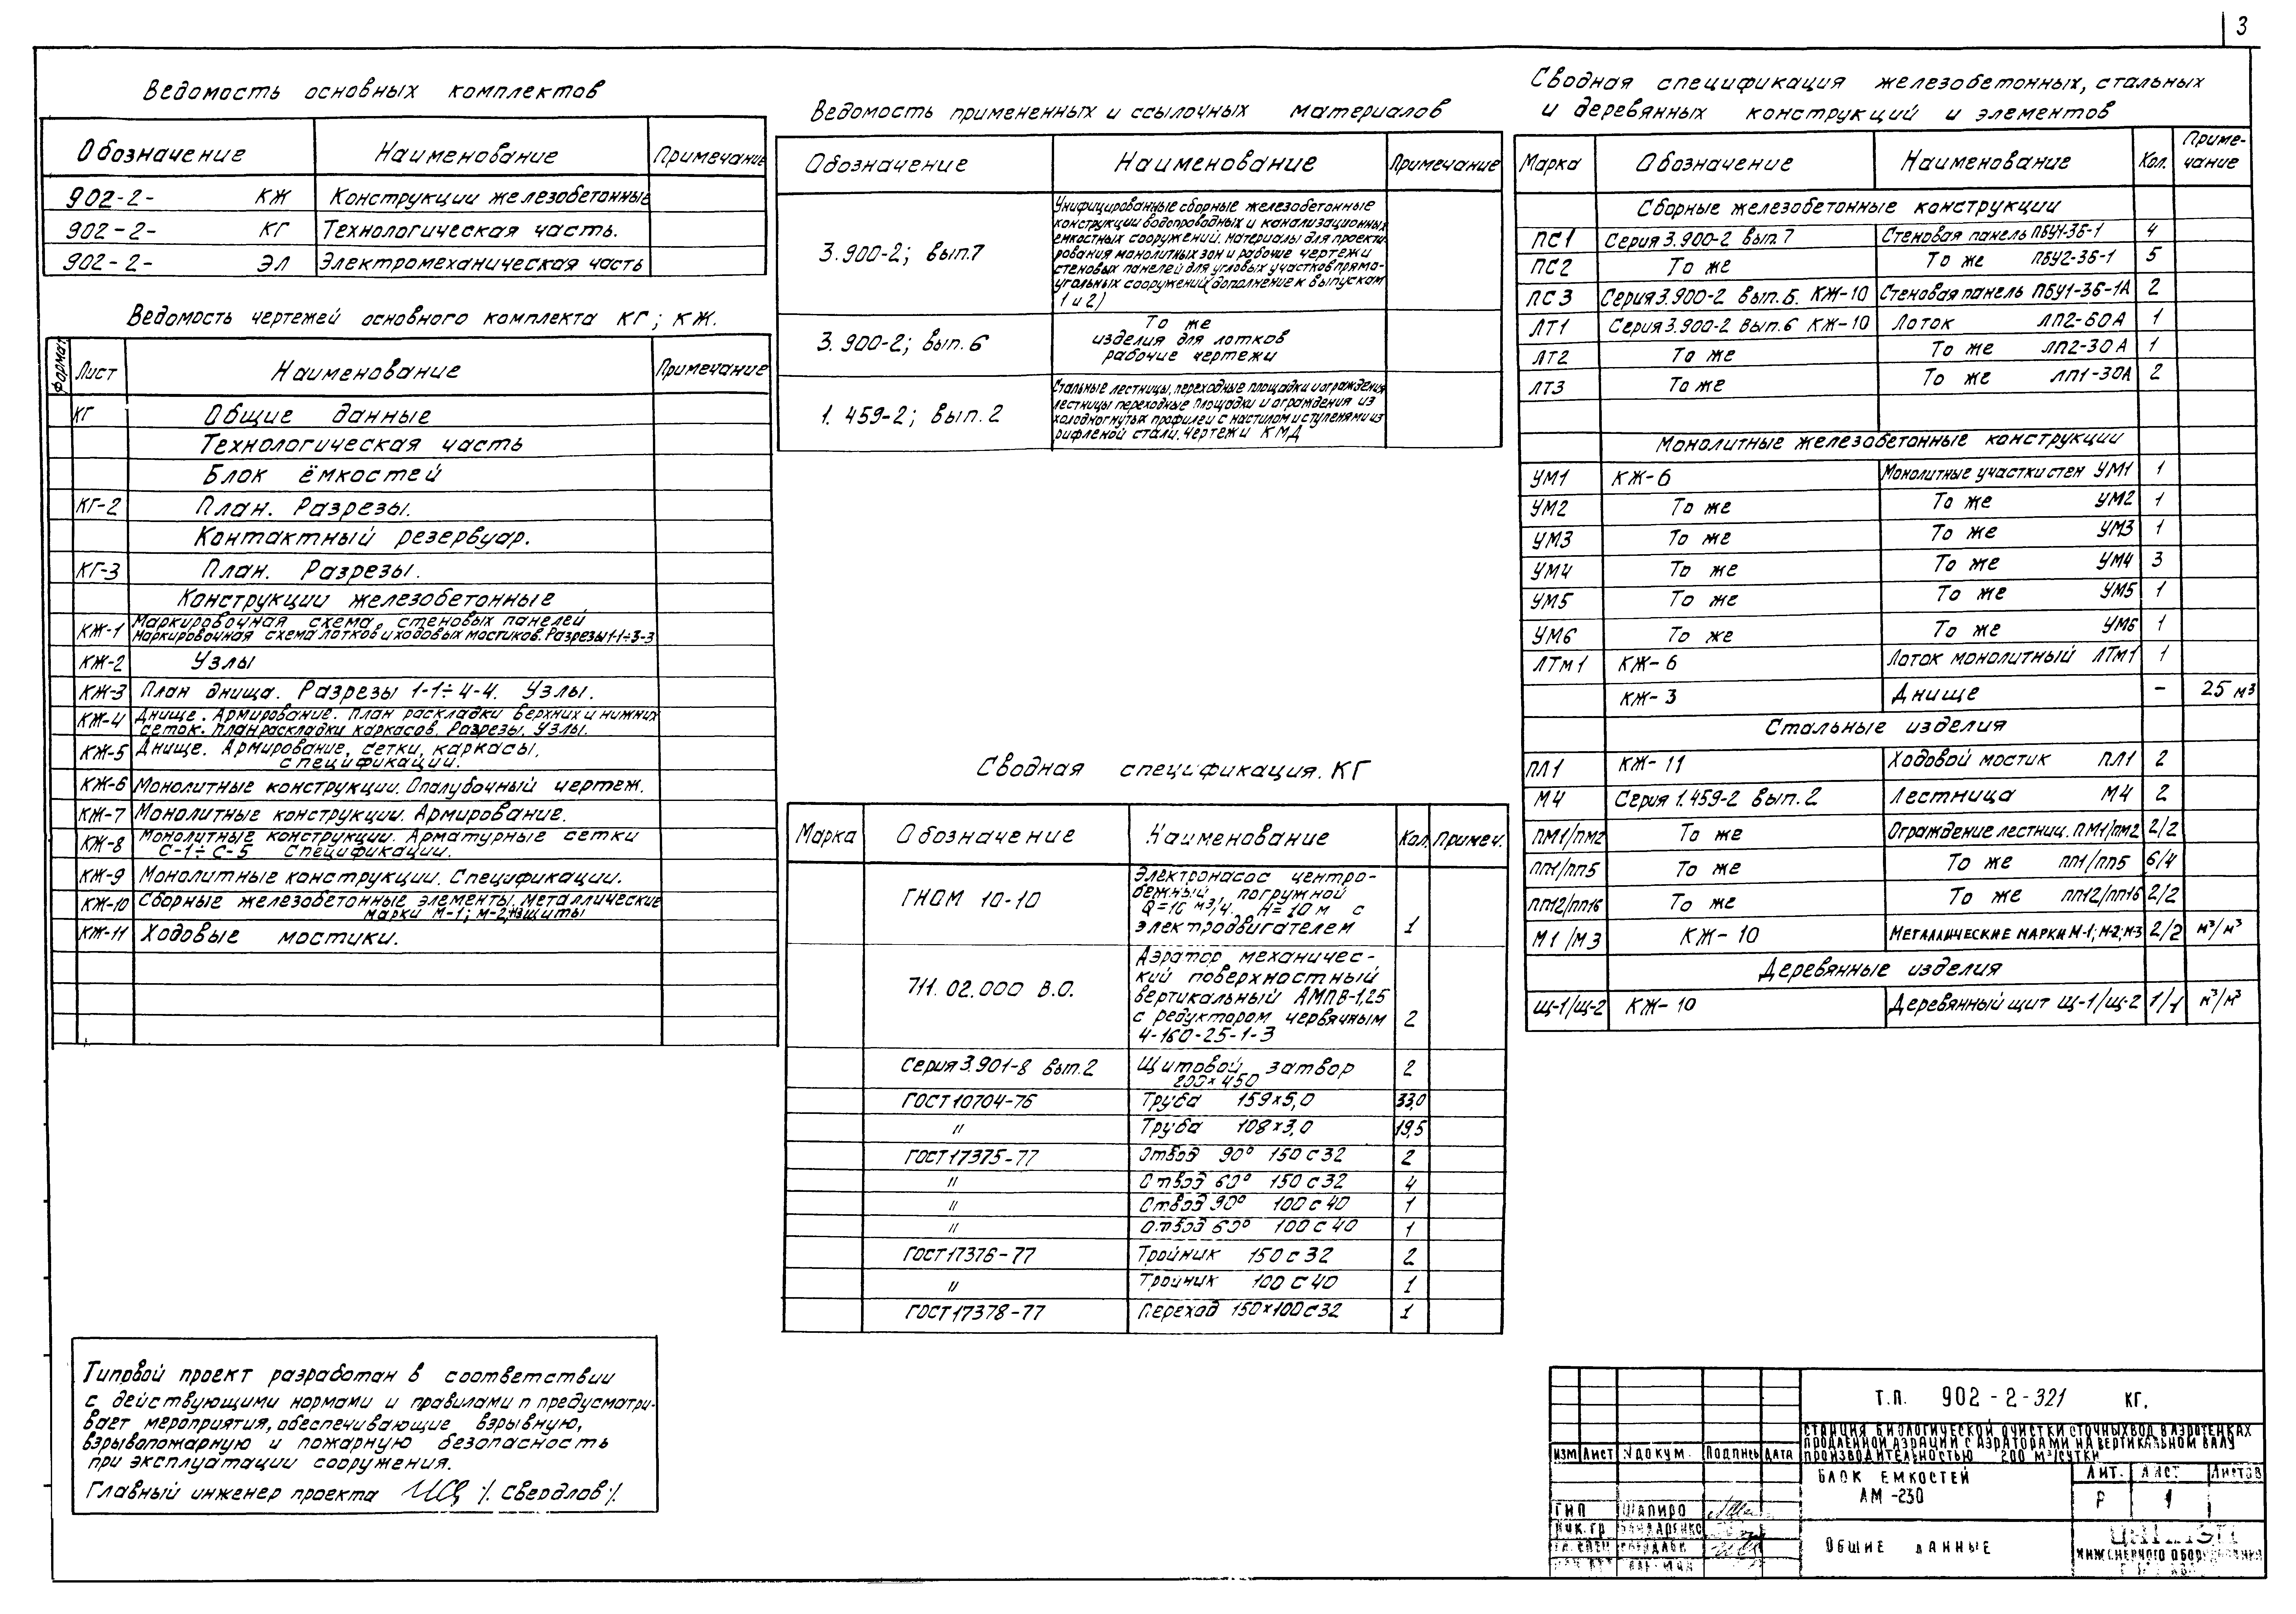 3
Ведомость основных комплектов
Обозначение Наименование Примечание
902-2- КЖ Конструкции железобетонные
902-2- КГ Технологическая часть.
902-2- ЭЛ Электромеханическая часть
Ведомость чертежей основного комплекта КГ; КЖ.
Формат Лист Наименование Примечание
КГ Общие данные
Технологическая часть
Блок ёмкостей
КГ-2 План. Разрезы.
Контактный резервуар.
КГ-3 План. Разрезы.
Конструкции железобетонные
КЖ-1 Маркировочная схема стеновых панелей
Маркировочная схема лотков и ходовых мостиков. Разрезы 1-1÷3-3
КЖ-2 Узлы
КЖ-3 План днища. Разрезы 1-1÷4-4. Узлы.
КЖ-4 Днище. Армирование. План раскладки верхних и нижних
сеток. План раскладки каркасов. Разрезы. Узлы.
КЖ-5 Днище. Армирование, сетки, каркасы,
спецификации.
КЖ-6 Монолитные конструкции. Опалубочный чертеж.
КЖ-7 Монолитные конструкции. Армирование.
КЖ-8 Монолитные конструкции. Арматурные сетки
С-1÷С-5 Спецификации.
КЖ-9 Монолитные конструкции. Спецификации.
КЖ-10 Сборные железобетонные элементы. Металлические
марки М-1; М-2; щиты
КЖ-11 Ходовые мостики.
Типовой проект разработан в соответствии
с действующими нормами и правилами п предусматри-
вает мероприятия, обеспечивающие взрывную,
взрывопожарную и пожарную безопасность
при эксплуатации сооружения.
Главный инженер проекта /. Свердлов /.
Ведомость примененных и ссылочных материалов
Обозначение Наименование Примечание
3.900-2; вып.7 Унифицированные сборные железобетонные
конструкции водопроводных и канализационных
емкостных сооружений. Материалы для проекти-
рования монолитных зон и рабочие чертежи
стеновых панелей для угловых участков прямо-
угольных сооружений (дополнение к выпускам
1 и 2)
3.900-2; вып.6 То же
изделия для лотков
рабочие чертежи
1.459-2; вып.2 Стальные лестницы, переходные площадки и ограждения
лестницы переходные площадки и ограждения из
холодногнутых профилей с настилом и ступенями из
рифленой стали. Чертежи КМД
Сводная спецификация. КГ
Марка Обозначение Наименование Кол. Примеч.
ГНОМ 10-10 Электронасос центро-
бежный погружной
Q=10 м³/ч. H=10 м с
электродвигателем 1
711.02.000 В.О. Аэратор механичес-
кий поверхностный
вертикальный АМПВ-1,25
с редуктором червячным 2
Ч-160-25-1-3
Серия 3.901-8 вып.2 Щитовой затвор 2
200×450
ГОСТ 10704-76 Труба 159×5,0 33,0
" Труба 108×3,0 19,5
ГОСТ 17375-77 Отвод 90° 150 с 32 2
" Отвод 60° 150 с 32 4
" Отвод 90° 100 с 40 1
" Отвод 60° 100 с 40 1
ГОСТ 17376-77 Тройник 150 с 32 2
" Тройник 100 с 40 1
ГОСТ 17378-77 Переход 150×100 с 32 1
Сводная спецификация железобетонных, стальных
и деревянных конструкций и элементов
Марка Обозначение Наименование Кол. Приме-
чание
Сборные железобетонные конструкции
ПС1 Серия 3.900-2 вып.7 Стеновая панель ПБУ1-36-1 4
ПС2 То же То же ПБУ2-36-1 5
ПС3 Серия 3.900-2 вып.5. КЖ-10 Стеновая панель ПБУ1-36-1А 2
ЛТ1 Серия 3.900-2 вып.6 КЖ-10 Лоток ЛП2-60А 1
ЛТ2 То же То же ЛП2-30А 1
ЛТ3 То же То же ЛП1-30А 2
Монолитные железобетонные конструкции
УМ1 КЖ-6 Монолитные участки стен УМ1 1
УМ2 То же То же УМ2 1
УМ3 То же То же УМ3 1
УМ4 То же То же УМ4 3
УМ5 То же То же УМ5 1
УМ6 То же То же УМ6 1
ЛТм1 КЖ-6 Лоток монолитный ЛТм1 1
КЖ-3 Днище - 25 м³
Стальные изделия
ПЛ1 КЖ-11 Ходовой мостик ПЛ1 2
М4 Серия 1.459-2 вып.2 Лестница М4 2
ПМ1/ПМ2 То же Ограждение лестниц. ПМ1/ПМ2 2/2
ПП1/ПП5 То же То же ПП1/ПП5 6/4
ПП12/ПП16 То же То же ПП12/ПП16 2/2
М1/М3 КЖ-10 Металлические марки М-1; М-2; М-3 2/2 м³/м³
Деревянные изделия
Щ-1/Щ-2 КЖ-10 Деревянный щит Щ-1/Щ-2 1/1 м³/м³
Т.П. 902-2-321 КГ.
Станция биологической очистки сточных вод в аэротенках
продленной аэрации с аэраторами на вертикальном валу
производительностью 200 м³/сутки
Изм Лист № докум. Подпись Дата
Блок емкостей
АМ-230
Лит. Лист Листов
Р 1
ГИП Шапиро
Нач.гр Бондаренко
Общие данные
ЦНИИЭП
инженерного оборудования